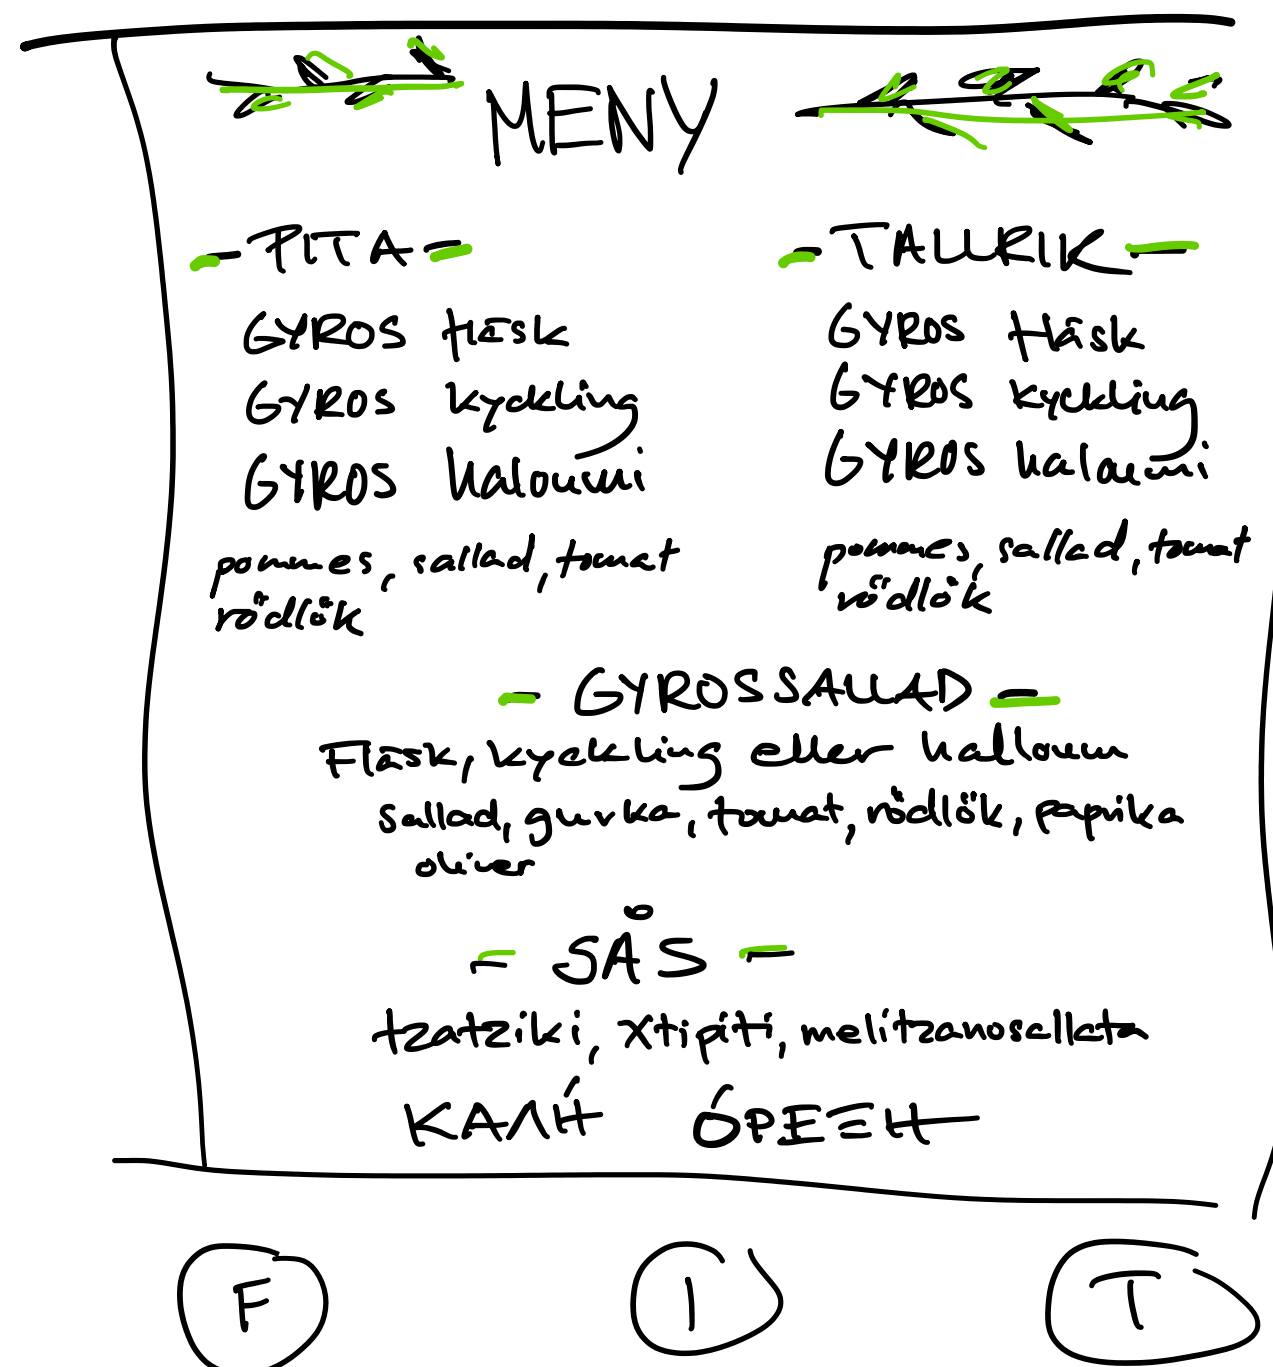 MENY
- PITA -
GYROS fläsk
GYROS kyckling
GYROS haloumi
pommes, sallad, tomat
rödlök
- TALLRIK -
GYROS fläsk
GYROS kyckling
GYROS haloumi
pommes, sallad, tomat
rödlök
- GYROSSALLAD -
Fläsk, kyckling eller halloum
sallad, gurka, tomat, rödlök, paprika
oliver
- SÅS -
tzatziki, xtipiti, melitzanosallata
ΚΑΛΉ ΌΡΕΞΗ
F I T